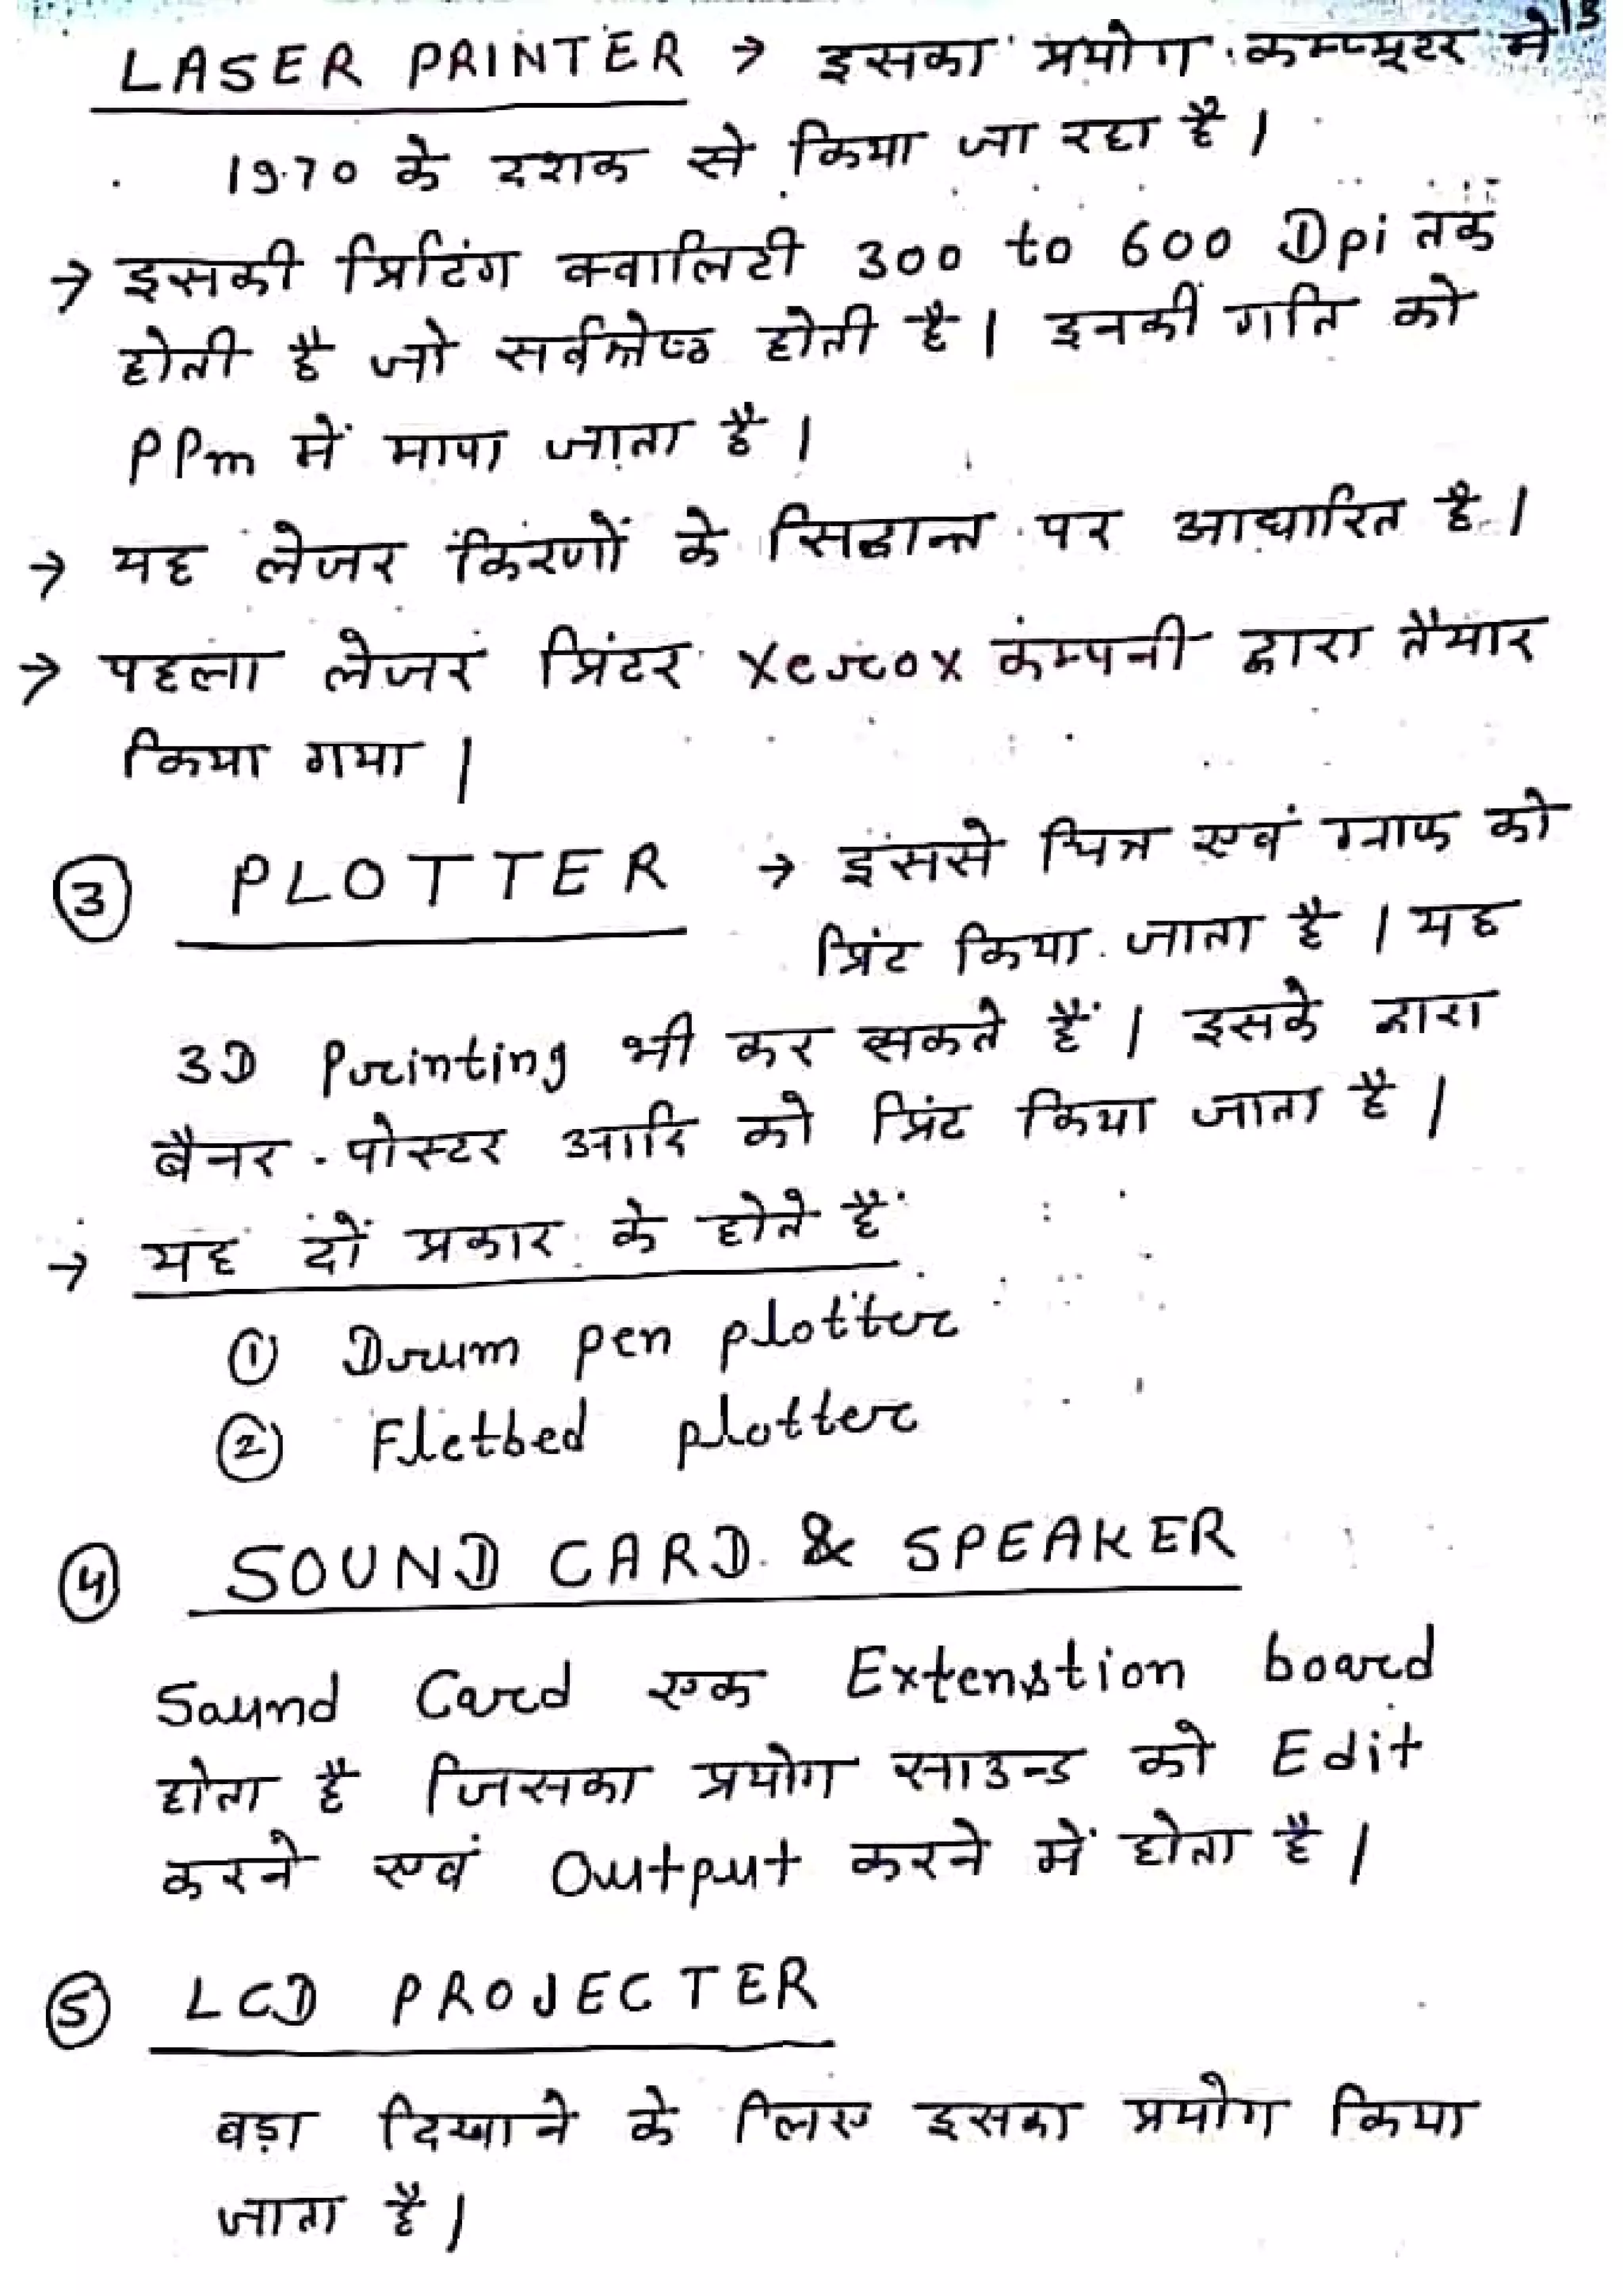 13
LASER PRINTER → इसका प्रयोग कम्प्यूटर में
1970 के दशक से किया जा रहा है।
→ इसकी प्रिटिंग क्वालिटी 300 to 600 Dpi तक
होती है जो सर्वश्रेष्ठ होती है। इनकी गति को
PPm में मापा जाता है।
→ यह लेजर किरणों के सिद्धान्त पर आधारित है।
→ पहला लेजर प्रिंटर Xerox कंम्पनी द्वारा तैयार
किया गया।
③ PLOTTER → इससे चित्र एवं ग्राफ को
प्रिंट किया जाता है। यह
3D Printing भी कर सकते हैं। इसके द्वारा
बैनर - पोस्टर आदि को प्रिंट किया जाता है।
→ यह दों प्रकार के होते हैं
① Drum pen plotter
② Fletbed plotter
④ SOUND CARD & SPEAKER
Sound Card एक Extenstion board
होता है जिसका प्रयोग साउन्ड को Edit
करने एवं Output करने में होता है।
⑤ LCD PROJECTER
बड़ा दिखाने के लिए इसका प्रयोग किया
जाता है।